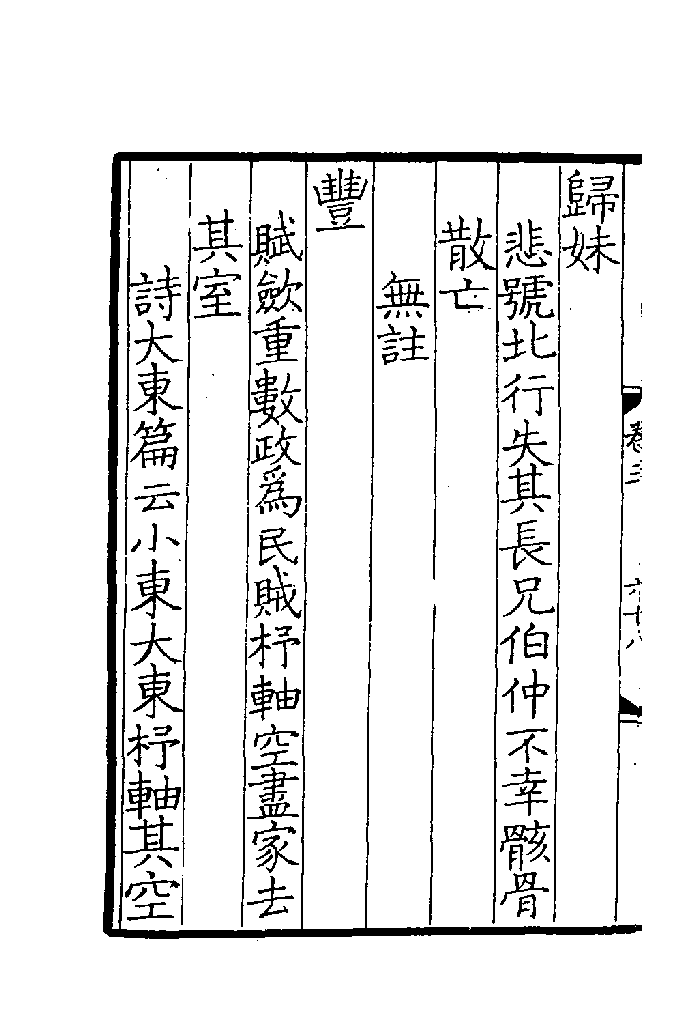 歸妹
悲號北行失其長兄伯仲不幸骸骨
散亡
無註
豐
賦斂重數政為民賊杼軸空盡家去
其室
詩大東篇云小東大東杼軸其空
卷三
六十八